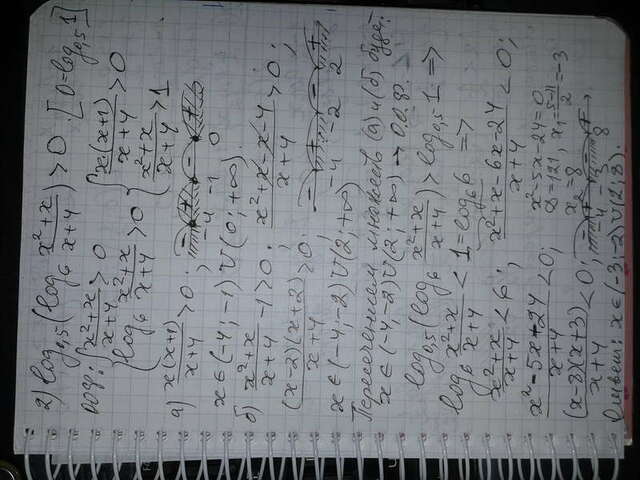 2) log₀,₅(log₆ (x²+x)/(x+4)) > 0 [0 = log₀,₅ 1]
ООУ: { (x²+x)/(x+4) > 0 { x(x+1)/(x+4) > 0
{ log₆ (x²+x)/(x+4) > 0 { (x²+x)/(x+4) > 1
а) x(x+1)/(x+4) > 0; - + - + -4 -1 0
x ∈ (-4; -1) ∪ (0; +∞).
б) (x²+x)/(x+4) - 1 > 0; (x²+x-x-4)/(x+4) > 0;
(x-2)(x+2)/(x+4) > 0; - + - + -4 -2 2
x ∈ (-4; -2) ∪ (2; +∞)
Пересечением множеств (а) и (б) будет:
x ∈ (-4; -2) ∪ (2; +∞) →
log₀,₅(log₆ (x²+x)/(x+4)) > log₀,₅ 1 =>
log₆ (x²+x)/(x+4) < 1 = log₆ 6 =>
(x²+x)/(x+4) < 6; (x²+x-6x-24)/(x+4) < 0;
(x²-5x-24)/(x+4) < 0; x²-5x-24=0,
D = 121, x₁ = (5-11)/2 = -3
x₂ = 8
(x-8)(x+3)/(x+4) < 0; - + - + -4 8
Ответ: x ∈ (-3; -2) ∪ (2; 8).